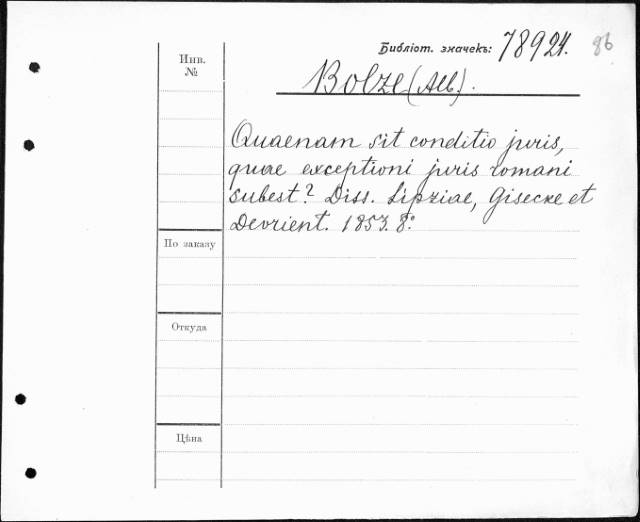 Библіот. значекъ: 78924.
86
Инв.
№
Bolze (Alb).
Quaenam sit conditio juris,
quae exceptioni juris romani
subest? Diss. Lipziae, Gisecke et
Devrient. 1853. 8º.
По заказу
Откуда
Цѣна